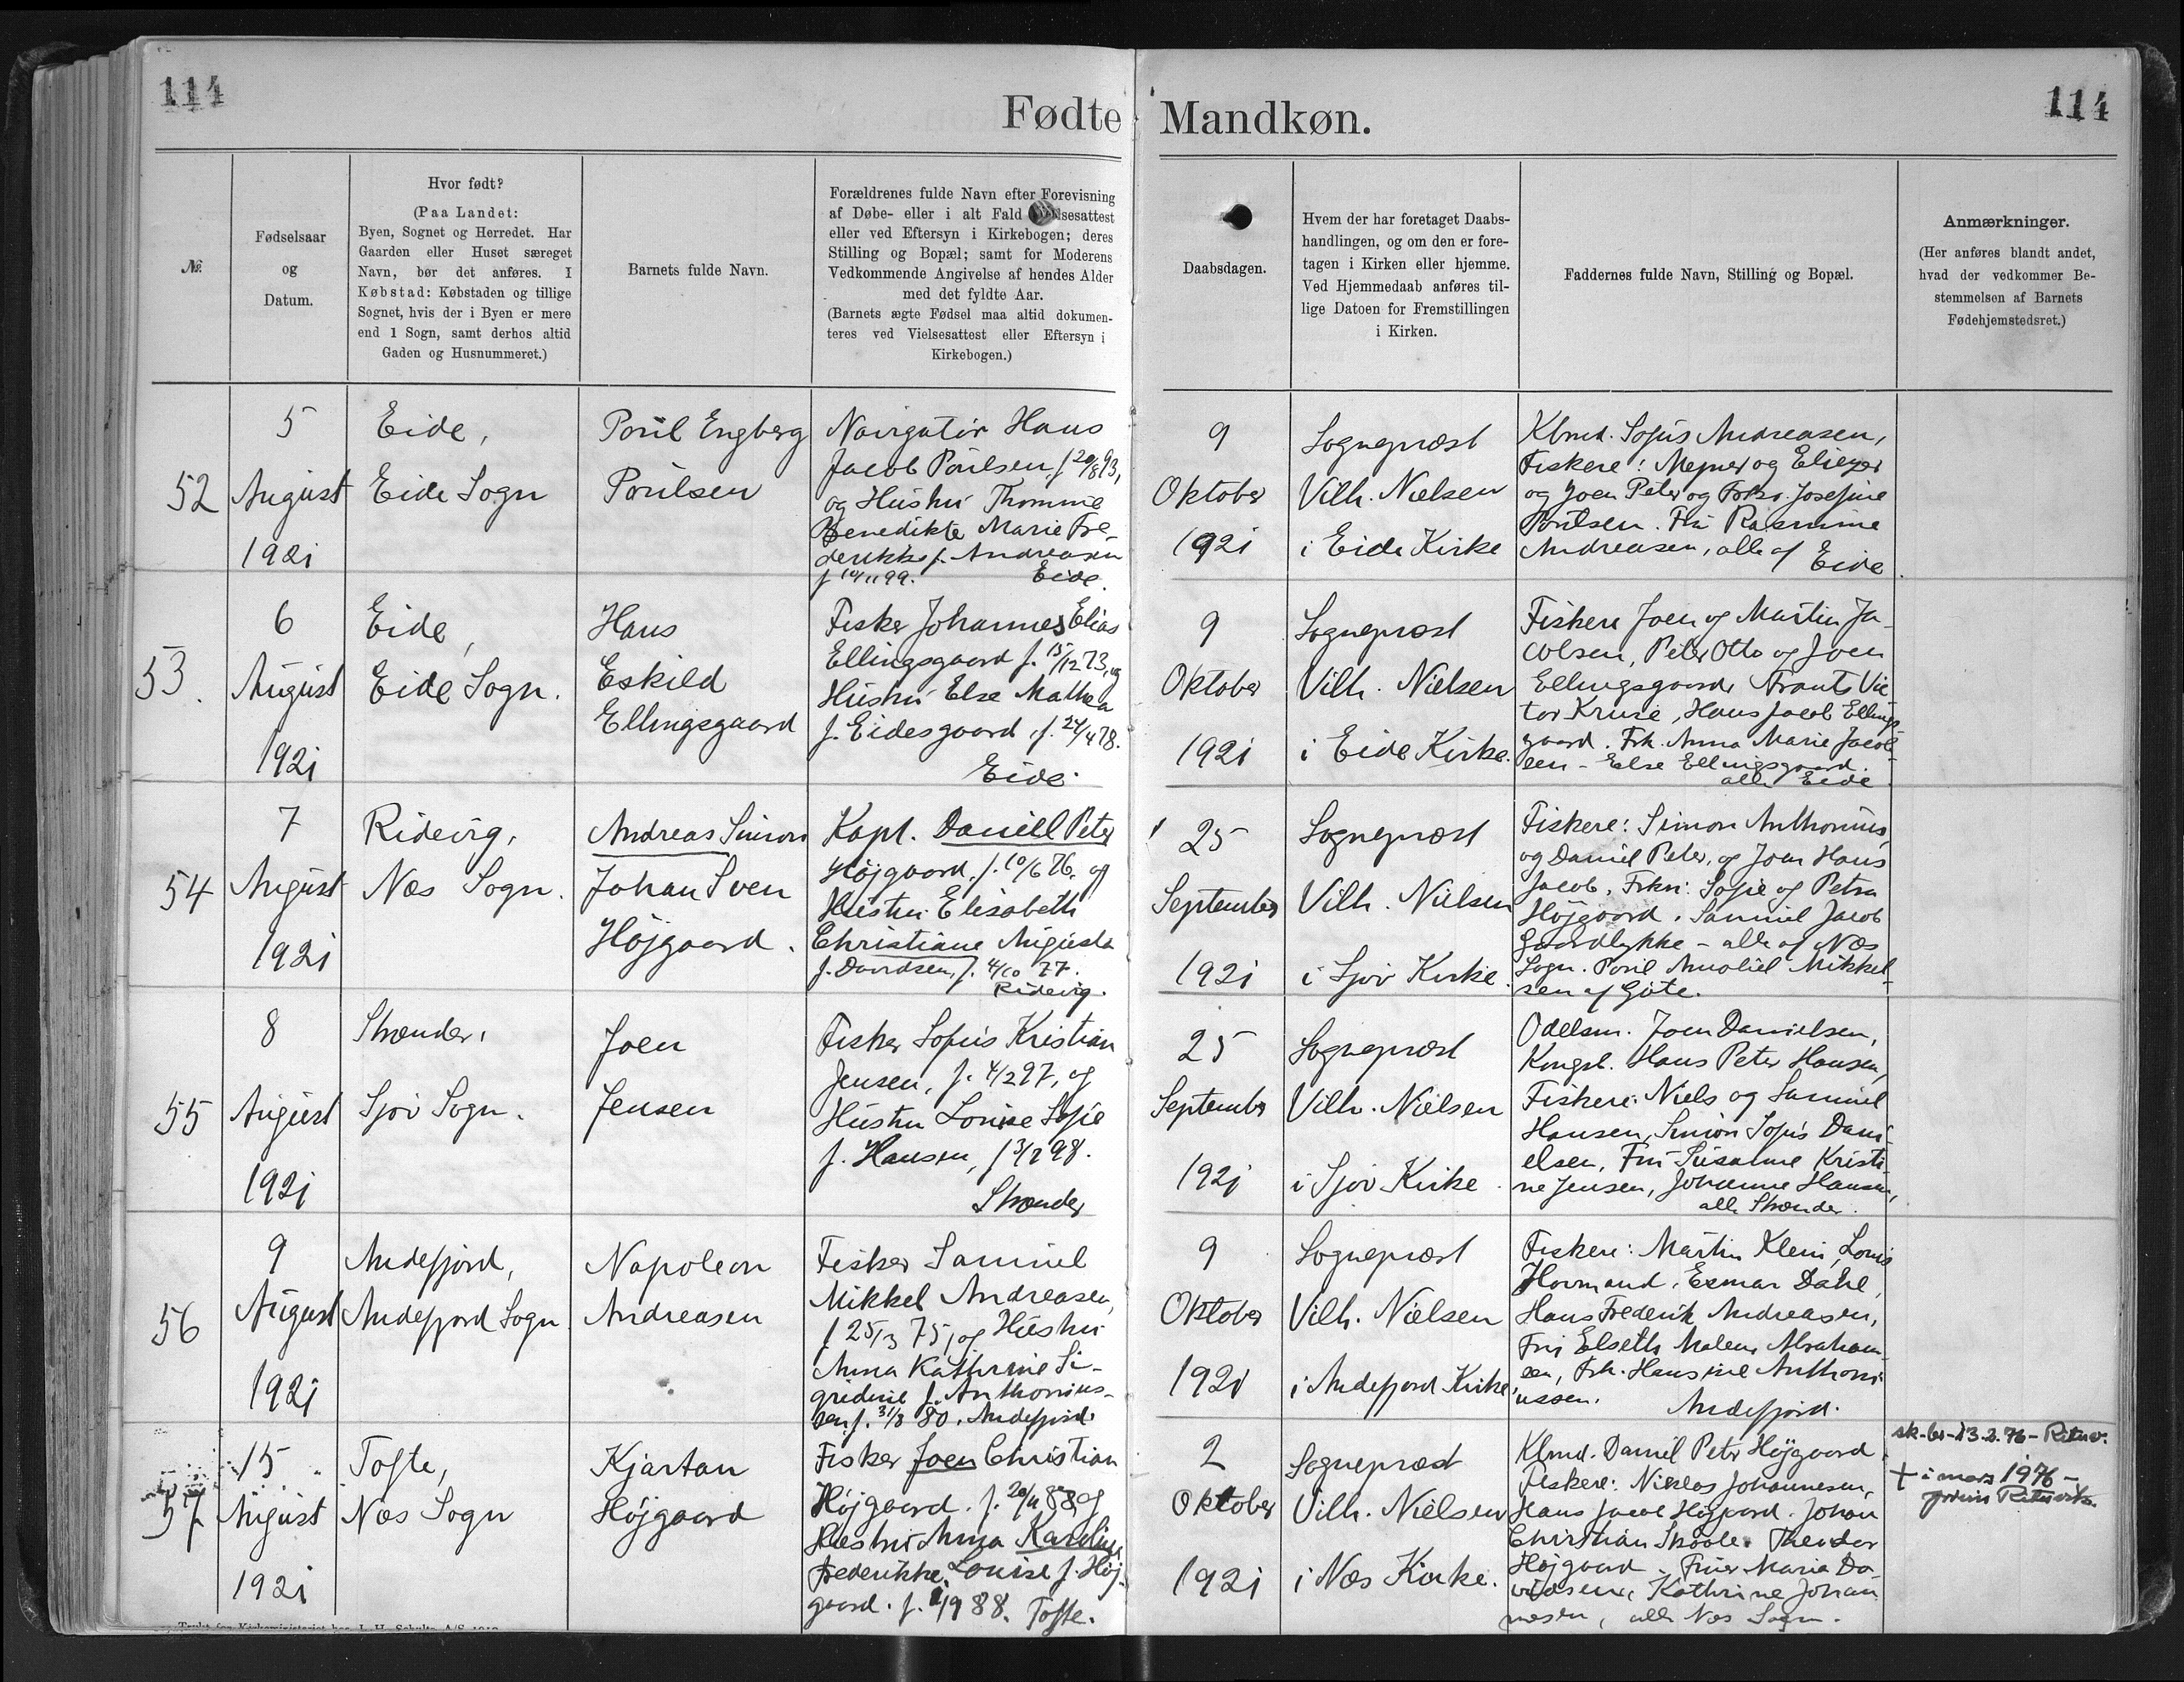 114
114
Fødte
Mandkøn.
№
Fødselsaar
og
Datum.
Hvor født?
(Paa Landet:
Byen, Sognet og Herredet. Har
Gaarden eller Huset særeget
Navn, bør det anføres. I
Købstad: Købstaden og tillige
Sognet, hvis der i Byen er mere
end 1 Sogn, samt derhos altid
Gaden og Husnummeret.)
Barnets fulde Navn.
Forældrenes fulde Navn efter Forevisning
af Døbe- eller i alt Fald
eller ved Eftersyn i Kirkebogen; deres
Stilling og Bopæl; samt for Moderens
Vedkommende Angivelse af hendes Alder
med det fyldte Aar.
(Barnets ægte Fødsel maa altid dokumen-
teres ved Vielsesattest eller Eftersyn i
Kirkebogen.)
Daabsdagen.
Hvem der har foretaget Daabs-
handlingen, og om den er fore-
tagen i Kirken eller hjemme.
Ved Hjemmedaab anføres til-
lige Datoen for Fremstillingen
i Kirken.
Faddernes fulde Navn, Stilling og Bopæl.
Anmærkninger.
(Her anføres blandt andet,
hvad der vedkommer Be-
stemmelsen af Barnets
Fødehjemstedsret.)
52
5
August
1921
Eide,
Eide Sogn
Poul Engberg
Poulsen
Navigatør Hans
Jacob Poulsen, f 20/8 93,
og Hustru Thomine
Benedikte Marie Fre-
derikke f. Andreasen
f 10/11 99. Eide.
9
Oktober
1921
Sognepræst
Vilh. Nielsen
i Eide Kirke
Klmd. Sofus Andreasen,
Fiskere: og Eliezer
og Joen Peter og Josefine
Poulsen. Fru Rasmine
Andreasen, alle af Eide
53.
6
August
1921
Eide,
Eide Sogn.
Hans
Eskild
Ellingsgaard
Fisker Johannes Elias
Ellingsgaard f. 15/12 73, og
Hustru Else Malhea
f. Eidesgaard, f. 24/4 78.
Eide.
9
Oktober
1921
Sognepræst
Vilh. Nielsen
i Eide Kirke.
Fiskere Joen og Martin Ja-
cobsen, Peter Otto og Joen
Ellingsgaard, Frants Vic
tor Kruse, Hans Jacob Ellings
gaard. Frk. Anna Marie Jacob-
sen - Else Ellingsgaard.
alle Eide
54
7
August
1921
Ridevig,
Næs Sogn.
Andreas Simon
Johan Sven
Højgaard.
Kapt. Daniell Peter
Højgaard, f. 10/6 76, og
Hustru Elisabeth
Christiane Augusta
f. Davidsen, f. 4/10 77.
Ridevig.
25
September
1921
Sognepræst
Vilh. Nielsen
i Sjov Kirke.
Fiskere: Simon Anthonius,
og Daniel Peter, og Joen Hans
Jacob, Frkn: Sofie og Petra
Højgaard. Samuel Jacob
Gaardlykke - alle af Næs
Sogn. Poul Mikkel-
sen af Gøte.
55
8
August
1921
Strænder,
Sjov Sogn.
Joen
Jensen
Fisker Sofus Kristian
Jensen, f. 4/2 97, og
Hustru Louise Sofie
f. Hansen, f 3/2 98.
Strænder
25
September
1921
Sognepræst
Vilh. Nielsen
i Sjov Kirke.
Odelsm. Joen Danielsen,
Kongsb. Hans Peter Hansen,
Fiskere: Niels og Samuel
Hansen, Simon Sofus Dani-
elsen, Fru Susanne Kristi-
ne Jensen, Johanne Hansen,
alle Strænder.
56
9
August
1921
Andefjord,
Andefjord Sogn
Napoleon
Andreasen
Fisker Samuel
Mikkel Andreasen,
f 25/3 75, og Hustru
Anna Kathrine Si-
gridine f. Anthonius-
sen f. 31/8 80. Andefjord.
9
Oktober
1921
Sognepræst
Vilh. Nielsen
i Andefjord Kirke
Fiskere: Martin Klein, Louis
Hormand, Esmar Dahl,
Hans Frederik Andreasen,
Fru Elseth Malene Abraham-
sen, Frk. Hansine Anthoni
ussen. Andefjord.
57
15
August
1921
Tofte,
Næs Sogn
Kjartan
Højgaard
Fisker Joen Christian
Højgaard. f. 20/11 88 og
Hustru Anna Karoline
Frederikke Louise f. Høj-
gaard. f. 1/9 88. Tofte.
2
Oktober
1921
Sognepræst
Vilh. Nielsen
i Næs Kirke.
Klmd. Daniel Peter Højgaard.
Fiskere: Niklas Johannesen,
Hans Jacob Højgaard. Johan
Christian Skoale. Theodor
Højgaard. Fruer Maria Da-
vidsen, Kathrine Johan
nesen, alle Næs Sogn.
sk-br-13.2.76-Rituv.
+ i mars 1976 -
Rituvik.